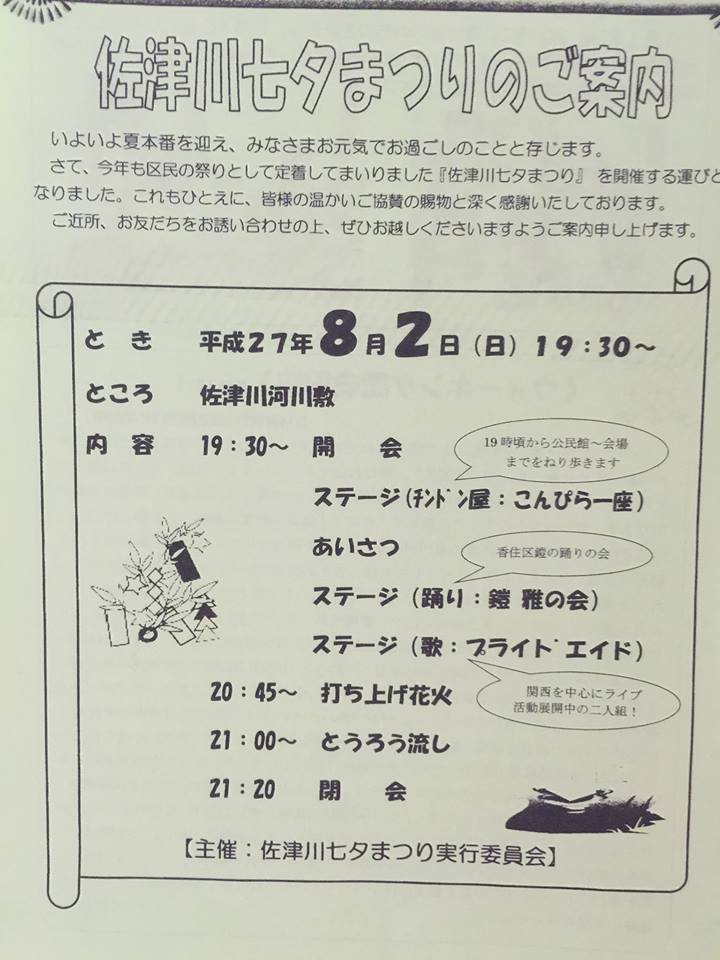 佐津川七夕まつりのご案内
いよいよ夏本番を迎え、みなさまお元気でお過ごしのことと存じます。
さて、今年も区民の祭りとして定着してまいりました『佐津川七夕まつり』 を開催する運びと
なりました。これもひとえに、皆様の温かいご協賛の賜物と深く感謝いたしております。
ご近所、お友だちをお誘い合わせの上、ぜひお越しくださいますようご案内申し上げます。
とき 平成27年8月2日(日)19:30~
ところ 佐津川河川敷
内容 19:30~ 開 会
19時頃から公民館~会場
までをねり歩きます
ステージ(ﾁﾝﾄﾞﾝ屋:こんぴら一座)
あいさつ
香住区鎧の踊りの会
ステージ(踊り:鎧 雅の会)
ステージ(歌:プライドエイド)
関西を中心にライブ
活動展開中の二人組!
20:45~ 打ち上げ花火
21:00~ とうろう流し
21:20 閉 会
【主催:佐津川七夕まつり実行委員会】